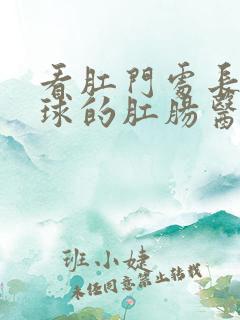 看肛門處長
球的肛腸醫
班小婕
未任同意禁止轉載